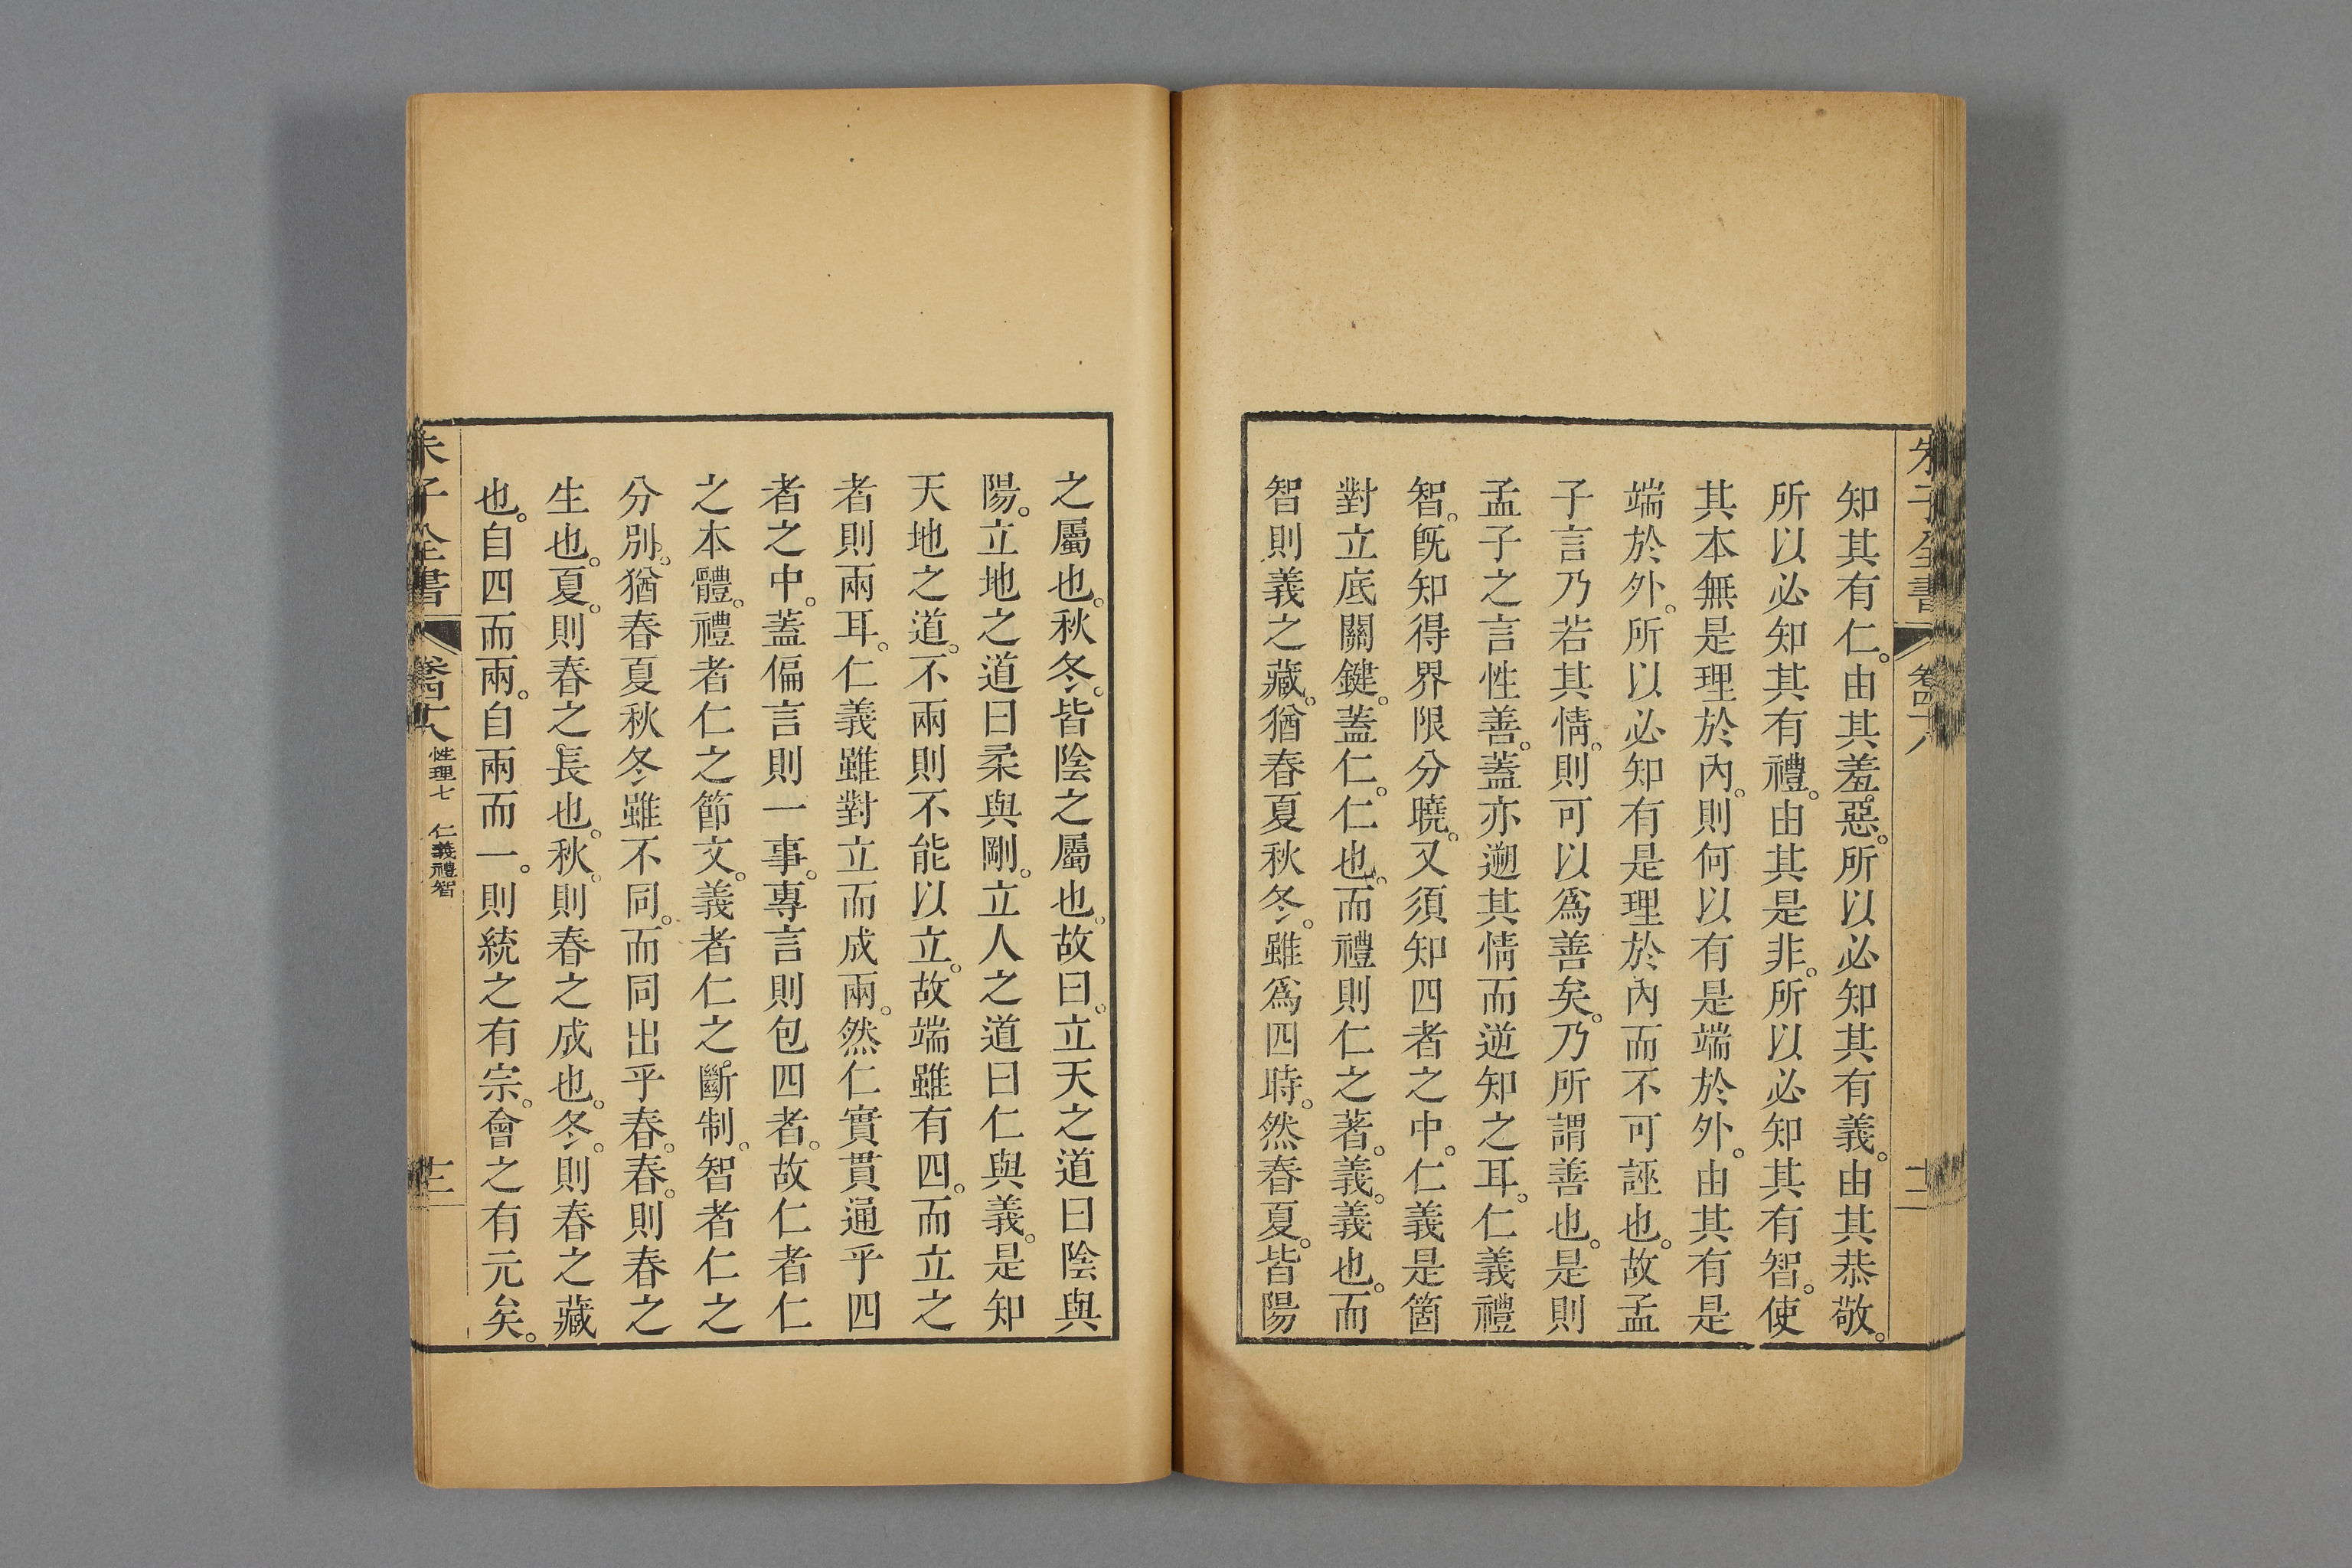 朱子全書 卷四十八 十二
知其有仁。由其羞惡。所以必知其有義。由其恭敬。
所以必知其有禮。由其是非。所以必知其有智。使
其本無是理於內。則何以有是端於外。由其有是
端於外。所以必知有是理於內而不可誣也。故孟
子言乃若其情。則可以爲善矣。乃所謂善也。是則
孟子之言性善。蓋亦遡其情而逆知之耳。仁義禮
智。旣知得界限分曉。又須知四者之中。仁義是箇
對立底關鍵。蓋仁。仁也。而禮則仁之著。義。義也。而
智則義之藏。猶春夏秋冬。雖爲四時。然春夏。皆陽
之屬也。秋冬。皆陰之屬也。故曰。立天之道曰陰與
陽。立地之道曰柔與剛。立人之道曰仁與義。是知
天地之道。不兩則不能以立。故端雖有四。而立之
者則兩耳。仁義雖對立而成兩。然仁實貫通乎四
者之中。蓋偏言則一事。專言則包四者。故仁者仁
之本體。禮者仁之節文。義者仁之斷制。智者仁之
分別。猶春夏秋冬雖不同。而同出乎春。春。則春之
生也。夏。則春之長也。秋。則春之成也。冬。則春之藏
也。自四而兩。自兩而一。則統之有宗。會之有元矣。
朱子全書 卷四十八 性理七 仁義禮智 十二